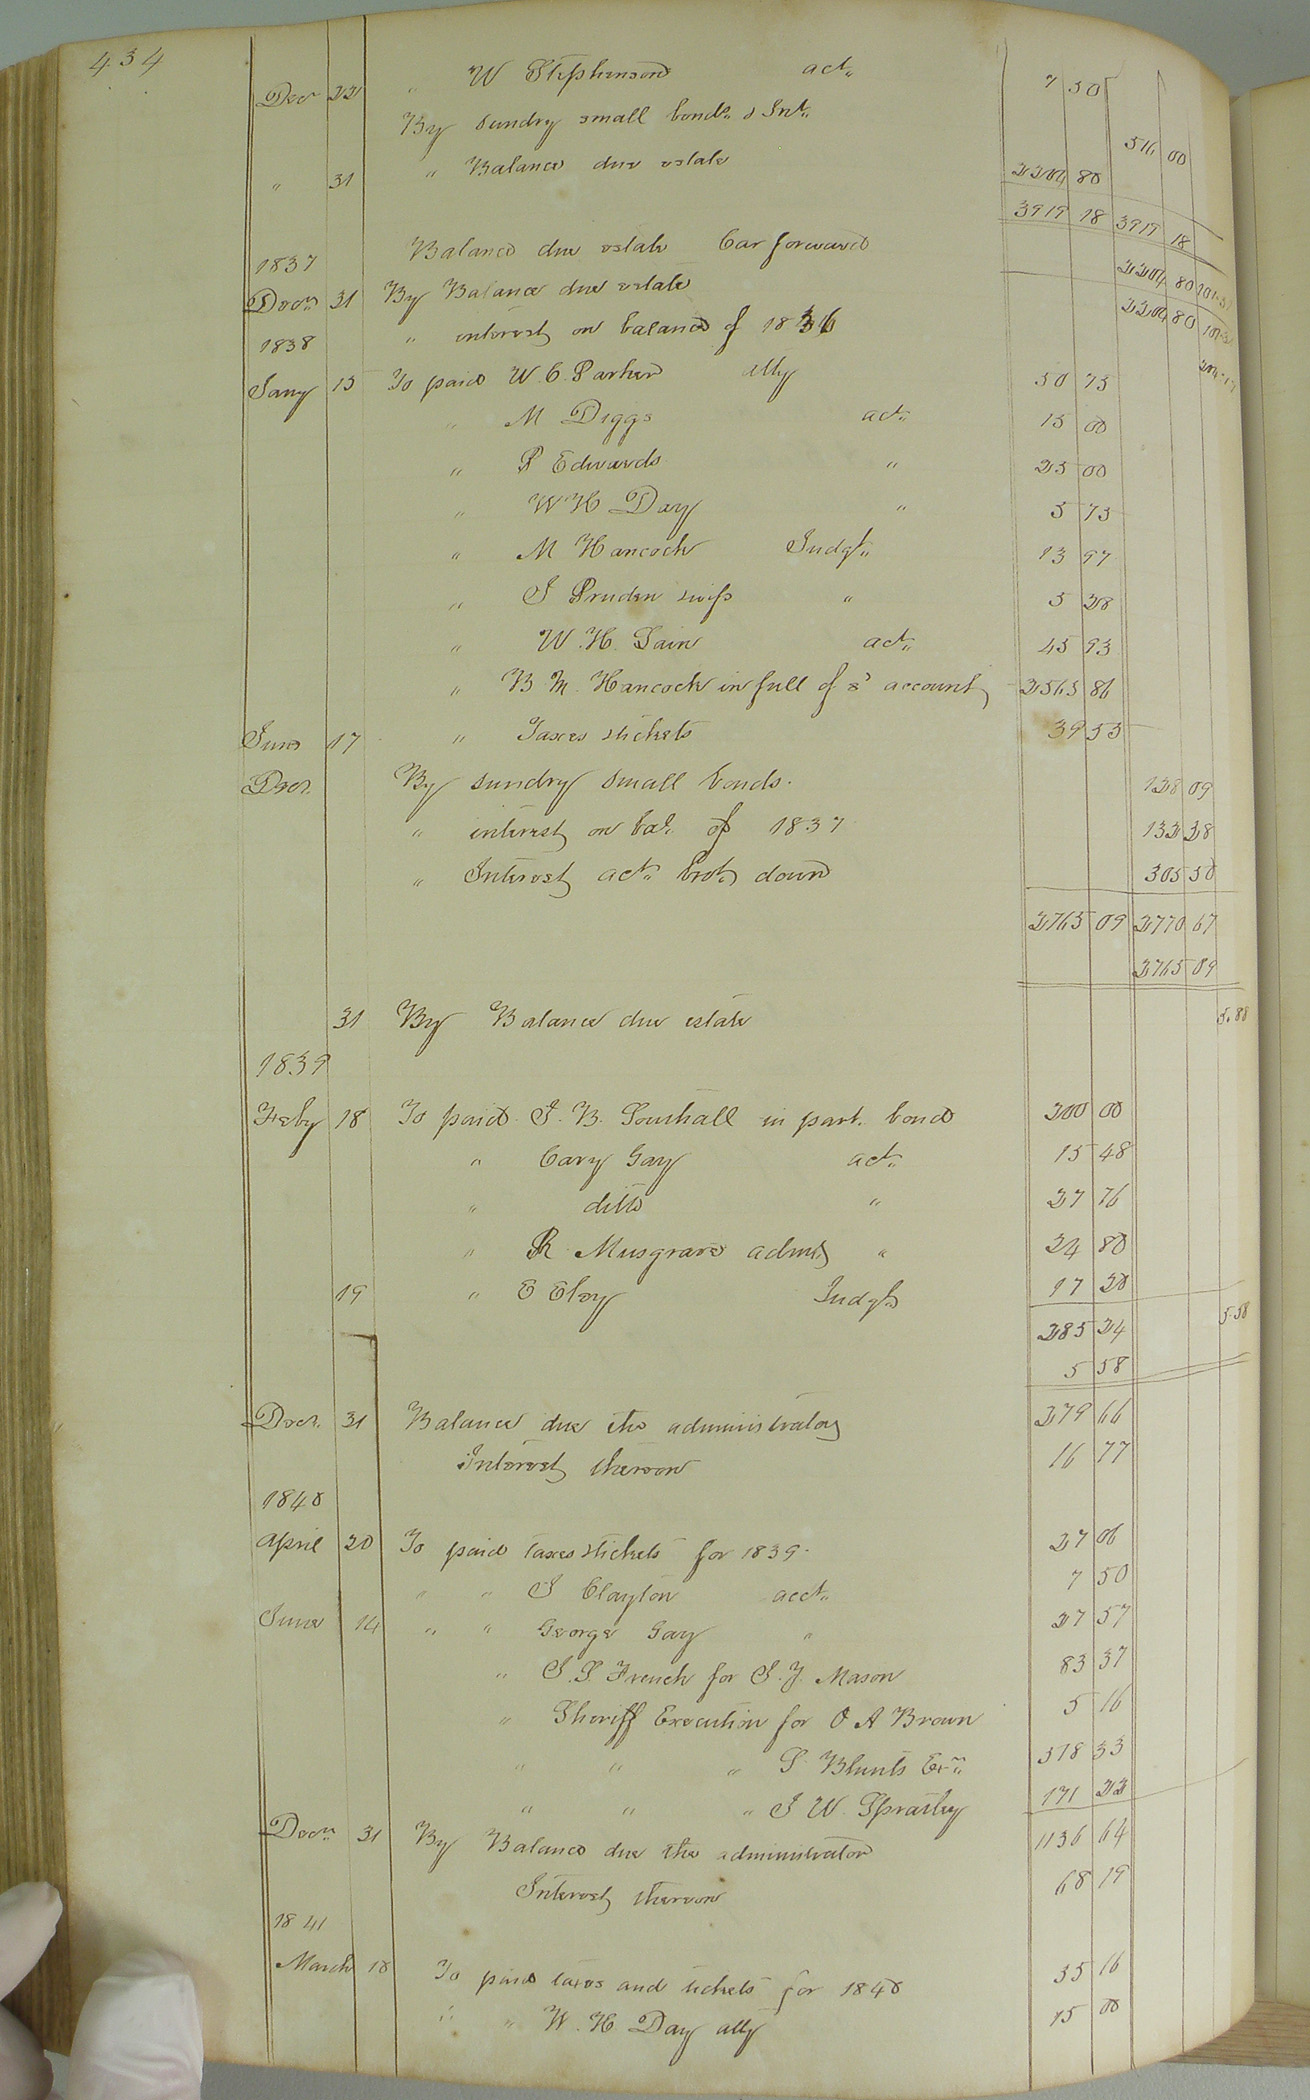 434
Decr 22 " W Stephenson act" 7 50
By sundry small bonds & Int" 516 00
" 31 " Balance due estate 2204 80
3919 18 3919 18
1837 Balance due estate Car forward 2204 80
Decr" 31 By Balance due estate 2204 80
1838 " interest on balance of 1836
Jany 15 To paid W. C. Parker atty 50 75
" M Diggs act" 15 00
" P Edwards " 25 00
" W H Day " 5 75
" M Hancock Judgt" 13 97
" J Pruden swifs " 5 28
" W. H. Sain act" 45 93
" B M. Hancock in full of s' account 2565 86
June 17 " Taxes tickets 39 55
Decr. By sundry small bonds. 128 09
" interest on bal. of 1837 132 28
" Interest act" brot down 305 50
2765 09 2770 67
2765 09
31 By Balance due estate 5.88
1839
Feby 18 To paid J. B. Southall in part. bond 200 00
" Cary Gay act" 15 48
" ditto " 27 76
" R Musgrave admr " 24 80
19 " E Eley Judgt 17 20
5.58
285 24
5 58
Decr. 31 Balance due the administrator 279 66
Interest thereon 16 77
1840
April 20 To paid taxes tickets for 1839. 27 06
" " J Clayton acct" 7 50
June 14 " " George Gay " 27 57
" S. S. French for J. Y. Mason 83 37
" Sheriff Execution for O A Brown 5 16
" " " S. Blunts Exr" 518 33
" " " J W. Spratley 171 22
Decr" 31 By Balance due the administrator 1136 64
Interest thereon 68 19
1841
March 18 To paid taxes and tickets for 1840 35 16
" " W. H. Day atty 15 00